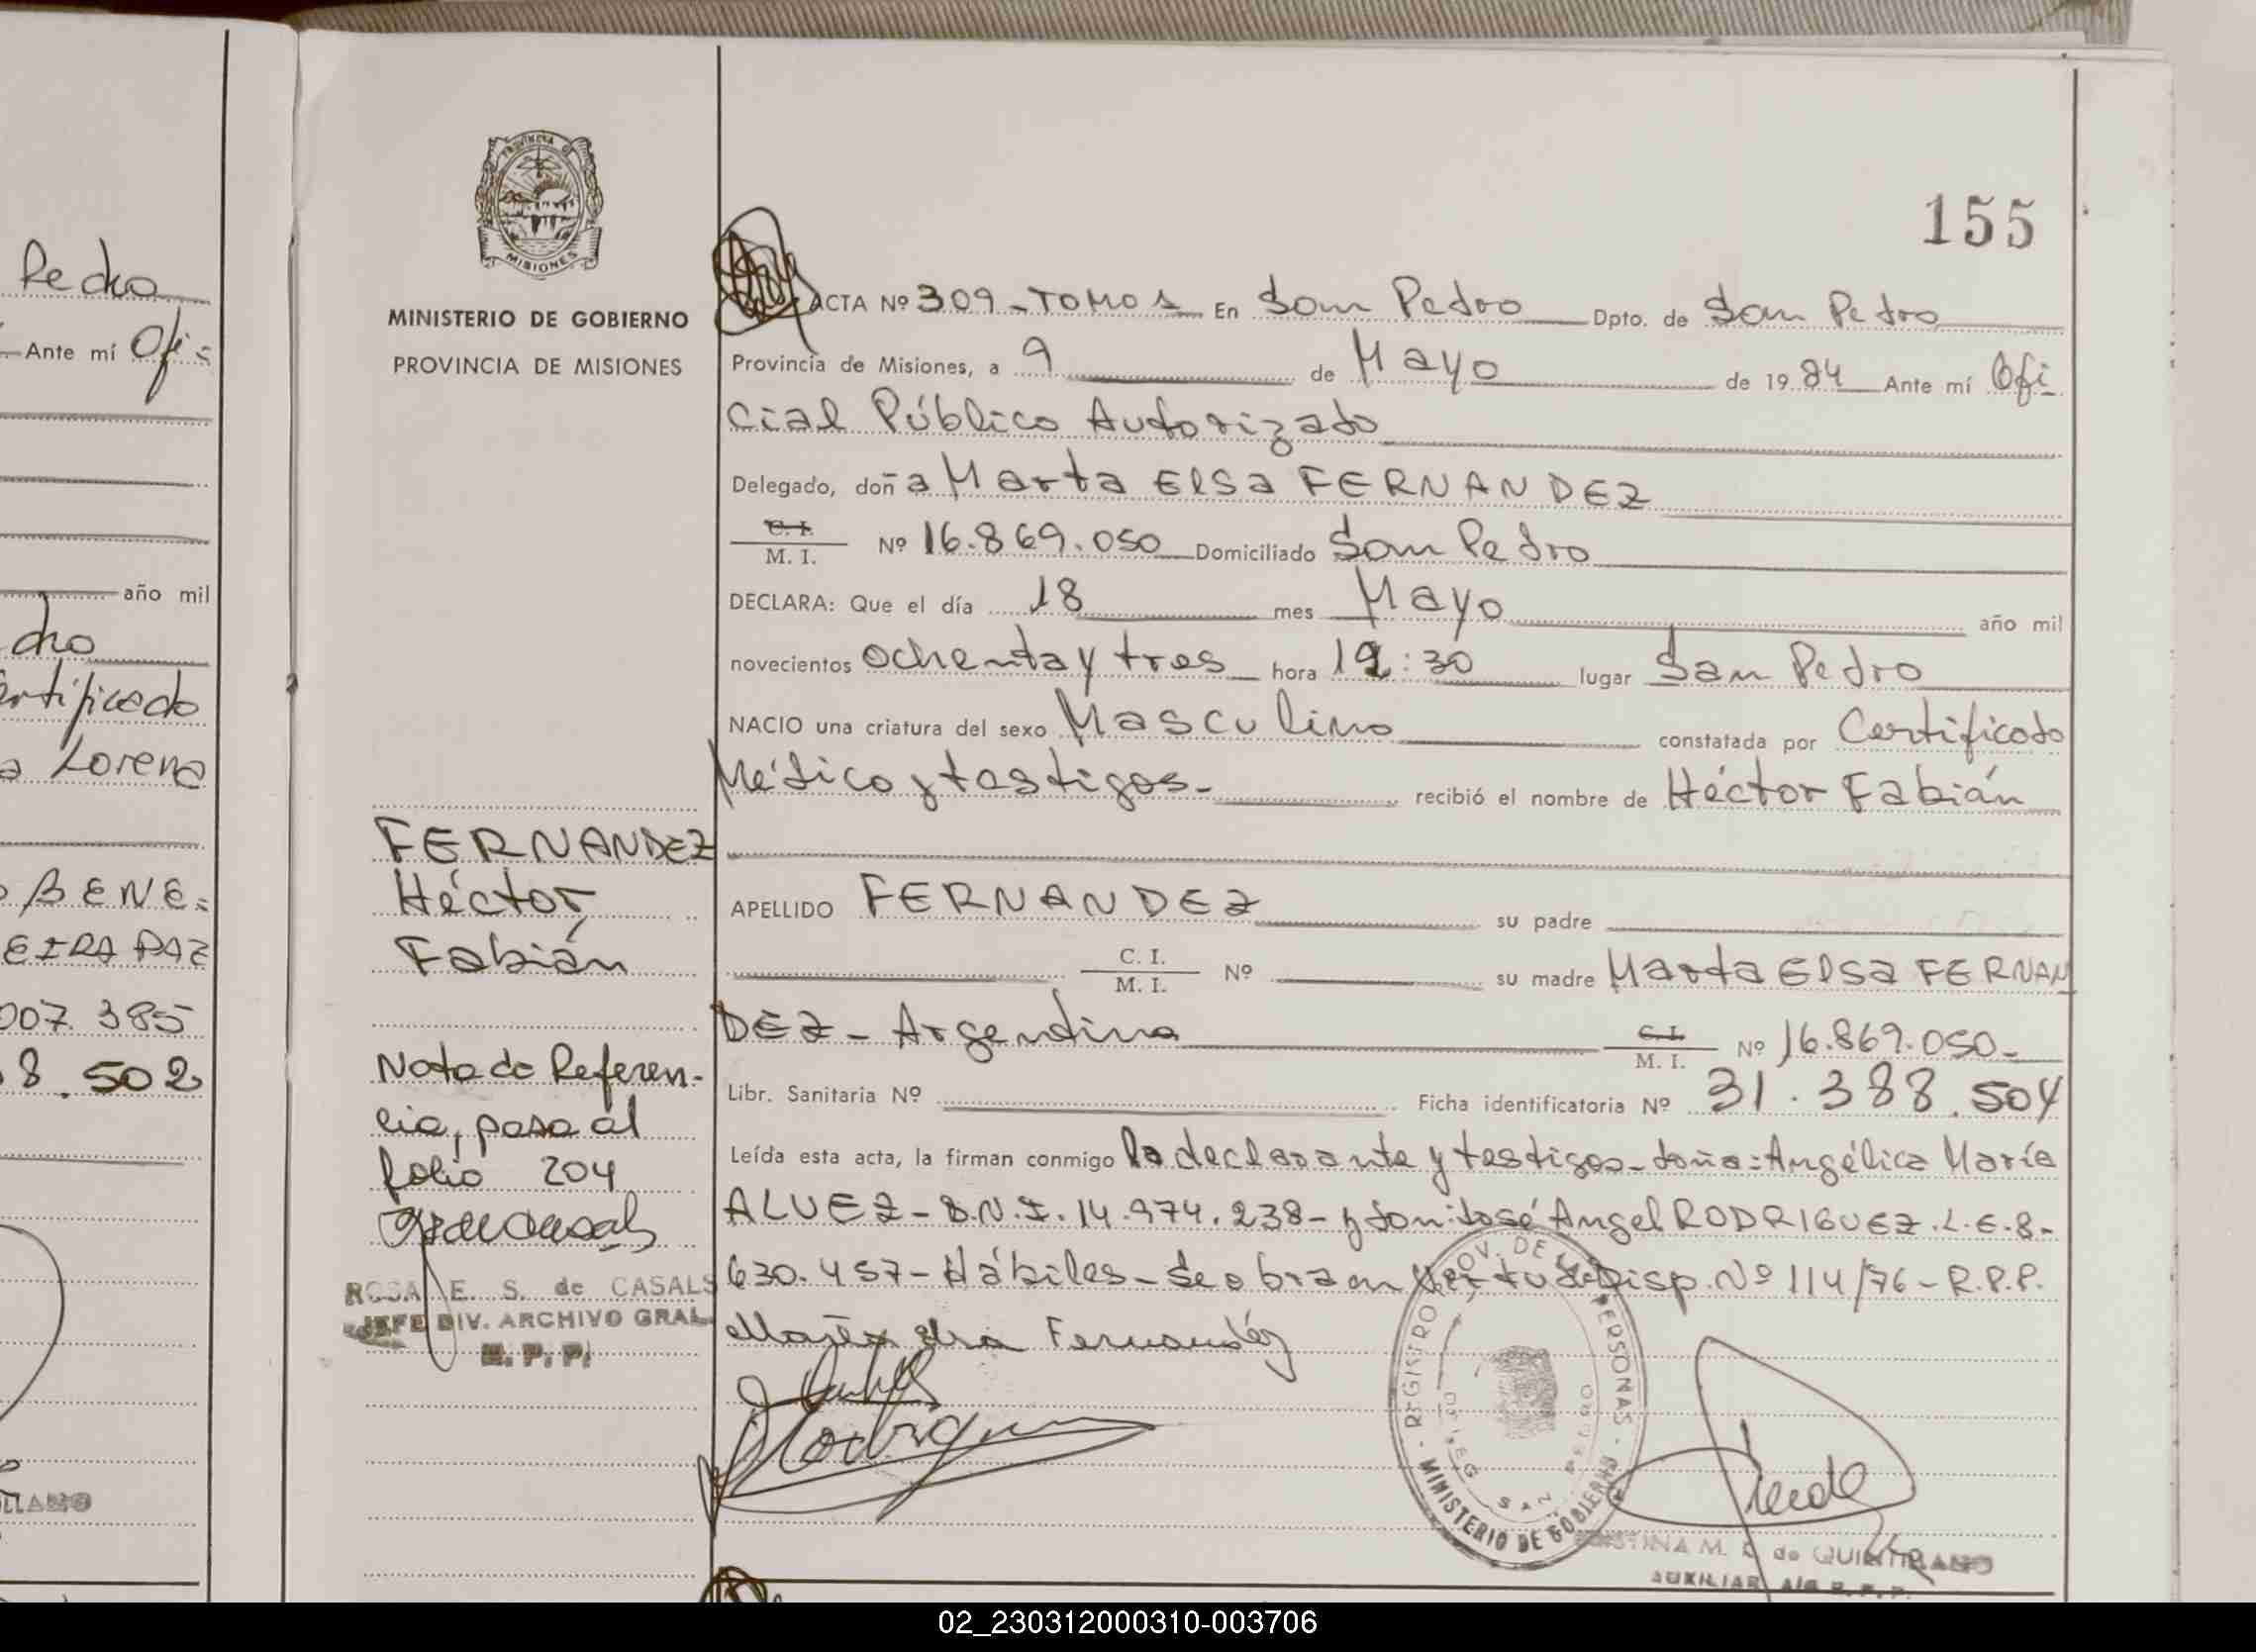 Pedro
Ante mí Ofi-
año mil
dro
Lorena
BENE-
EIRA PAZ
007 385
8.502
PROVINCIA DE
MISIONES
MINISTERIO DE GOBIERNO
PROVINCIA DE MISIONES
FERNANDEZ
Héctor
Fabián
Nota de Referen-
cia, pasa al
folio 204
ROSA E. S. de CASALS
JEFE DIV. ARCHIVO GRAL.
R. P. P.
155
ACTA Nº 309 - TOMO 1 En San Pedro Dpto. de San Pedro
Provincia de Misiones, a 9 de Mayo de 1984 Ante mí Ofi
cial Público Autorizado
Delegado, doña Marta Elsa FERNANDEZ
C. I.
M. I. Nº 16.869.050 Domiciliado San Pedro
DECLARA: Que el día 18 mes Mayo año mil
novecientos ochenta y tres hora 12:30 lugar San Pedro
NACIO una criatura del sexo Masculino constatada por Certificado
Médico y testigos.- recibió el nombre de Héctor Fabián
APELLIDO FERNANDEZ su padre
C. I.
M. I. Nº su madre Marta Elsa FERNAN
DEZ - Argentina C. I.
M. I. Nº 16.869.050-
Libr. Sanitaria Nº Ficha identificatoria Nº 31.388.504
Leída esta acta, la firman conmigo la declarante y testigos - doña: Angélica María
ALVEZ - D.N.I. 14.974.238 - y don: José Angel RODRIGUEZ. L.E. 8-
630.457 - Hábiles - Se obra en virtud Disp. Nº 114/76 - R.P.P.
Fernandez
Rodriguez
REGISTRO PROV. DE PERSONAS - MINISTERIO DE GOBIERNO
SAN PEDRO
M. de QUINTILLANO
AUXILIAR A/C R. P. P.
02_230312000310-003706